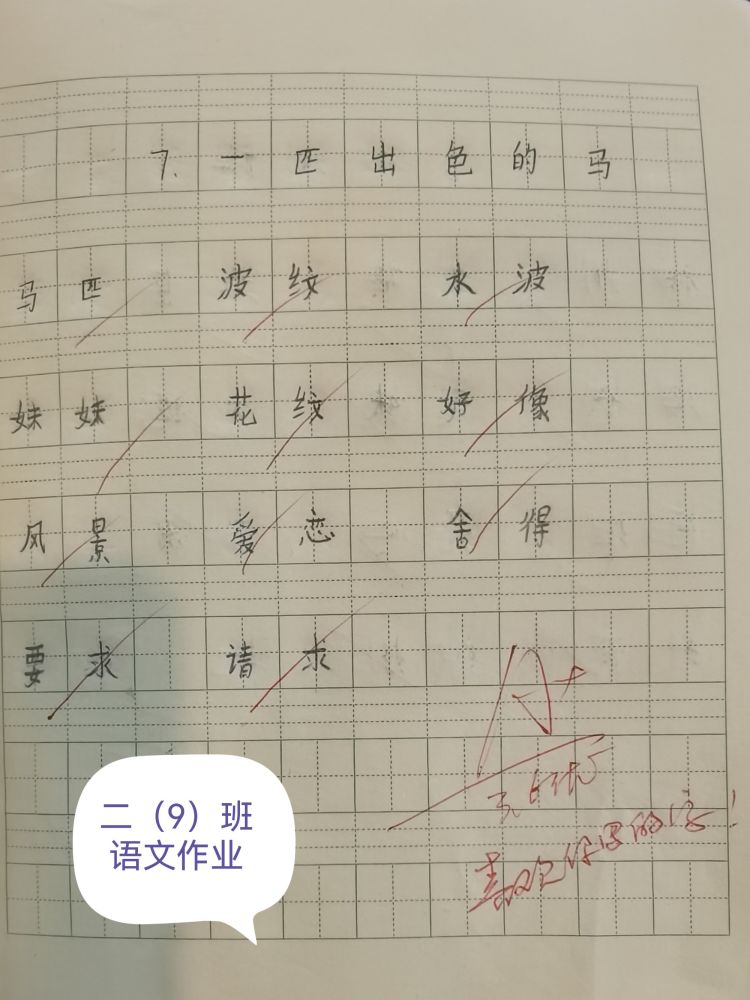 7. 一匹出色的马
马匹 波纹 水波
妹妹 花纹 好像
风景 爱恋 舍得
要求 请求
A+
喜欢你写的字!
二（9）班
语文作业